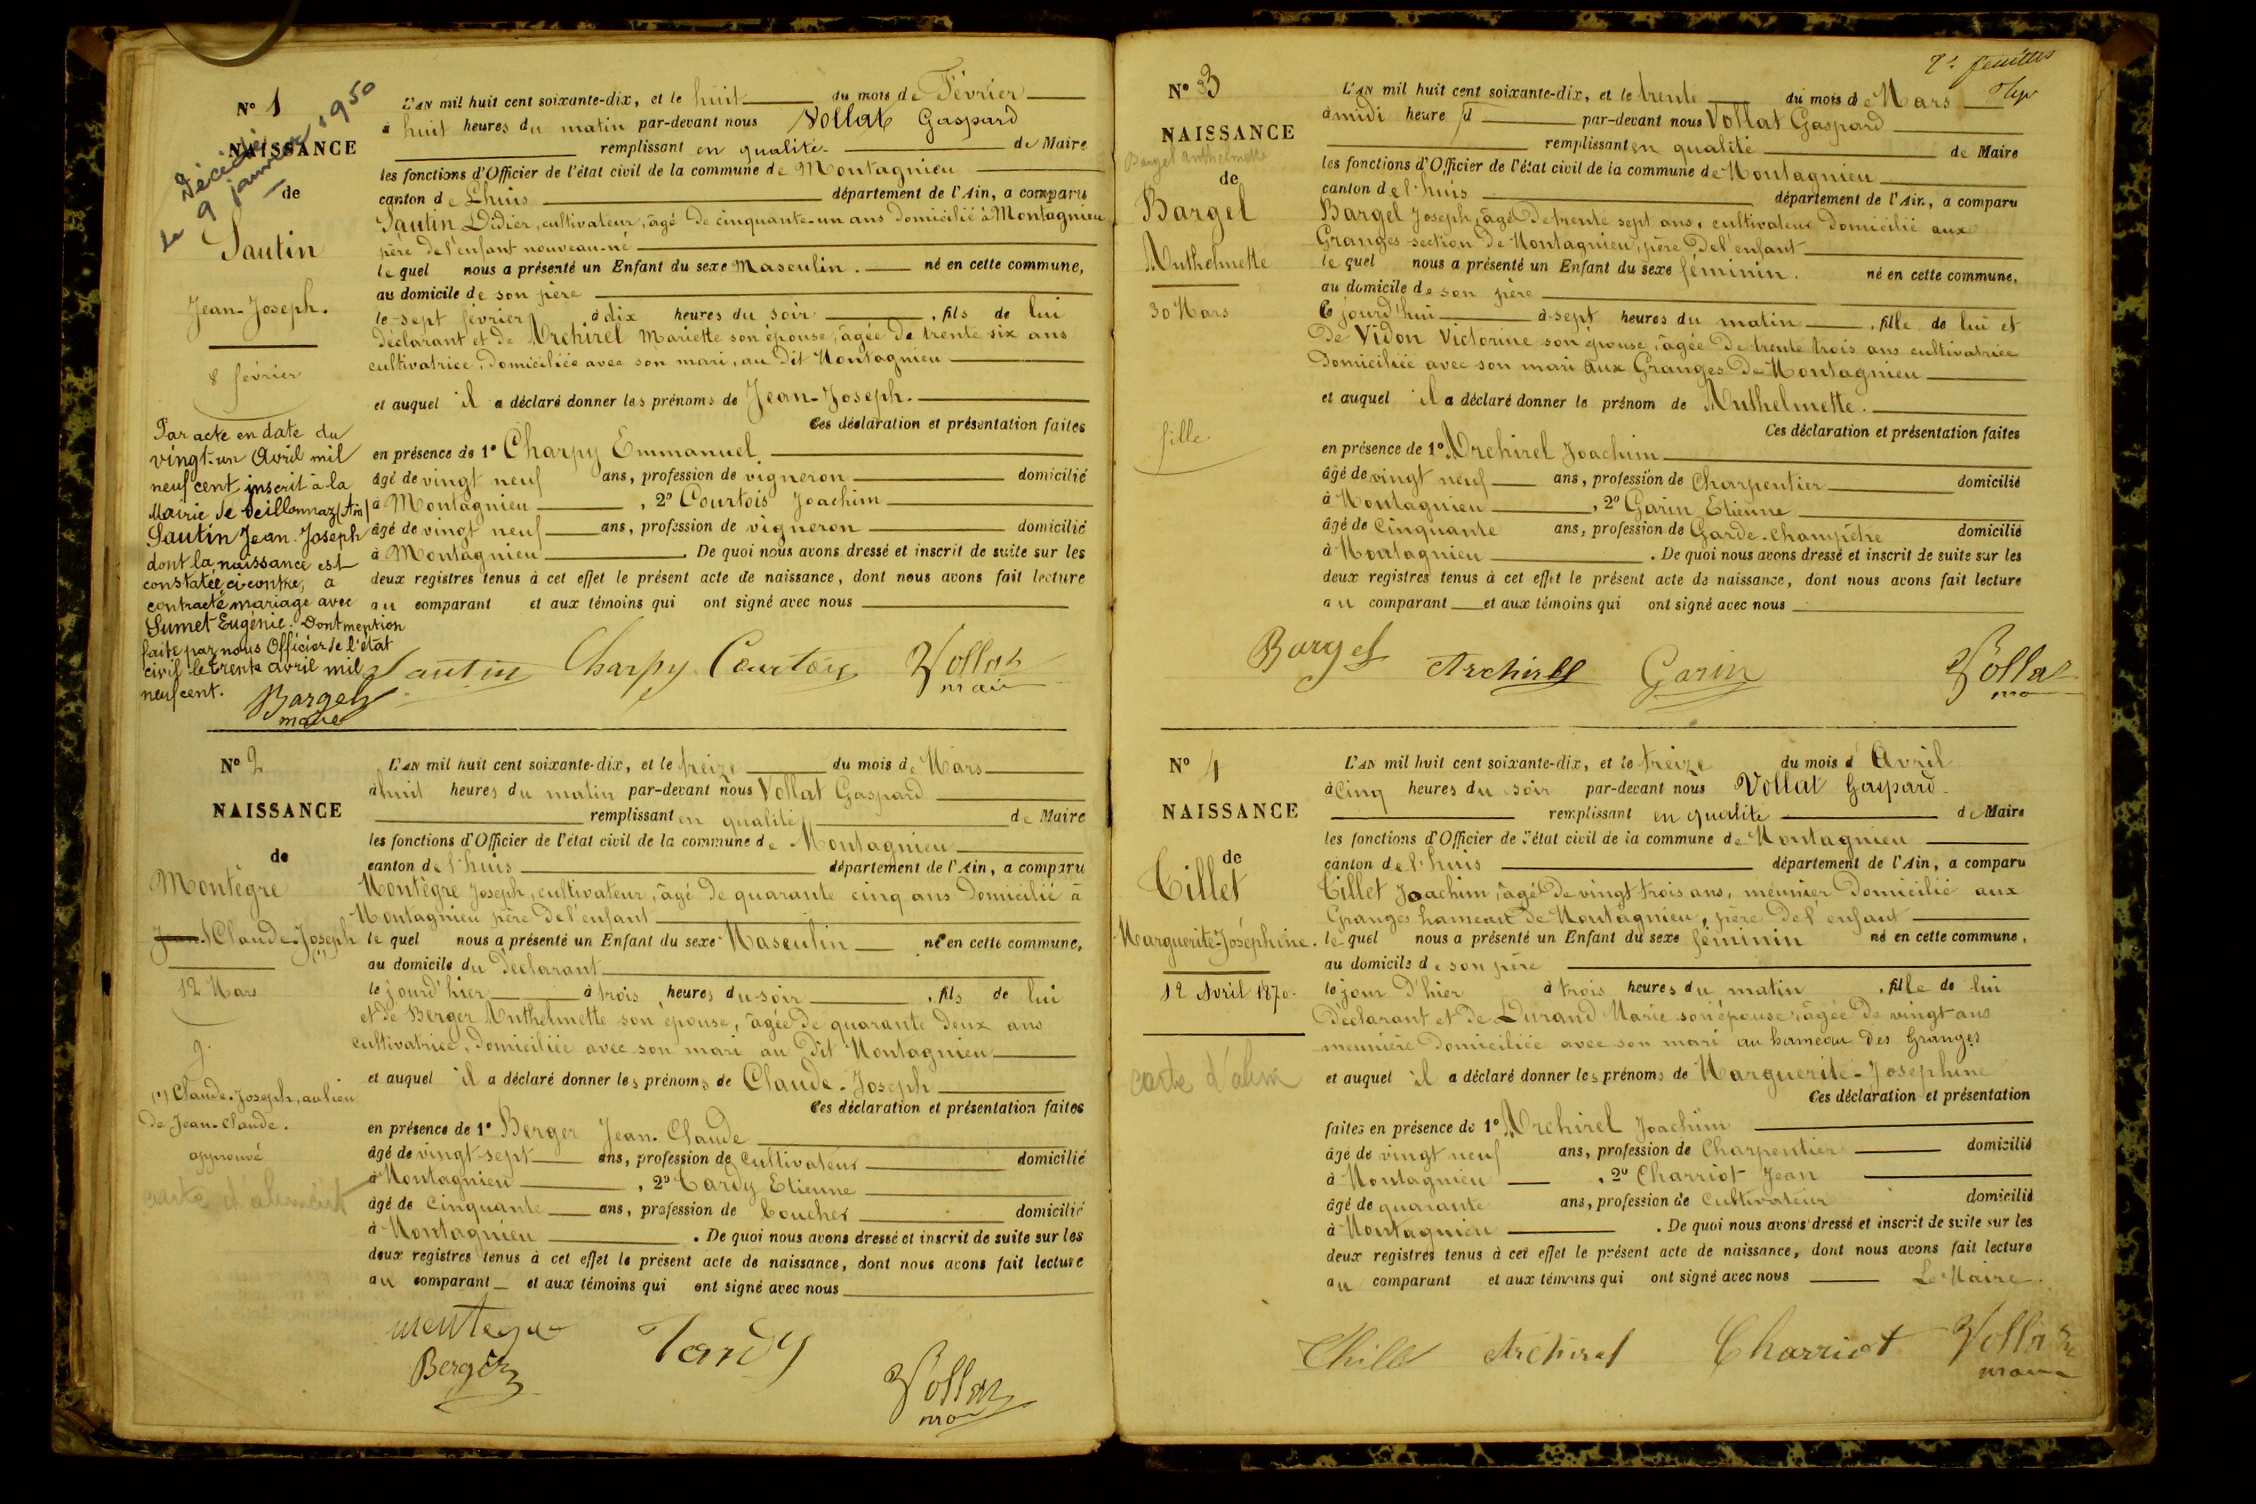 N° 1
Décédé
le 9 janvier 1950
NAISSANCE
de
Sautin
Jean-Joseph.
8 février
Par acte en date du
vingt-un Avril mil
neuf cent, inscrit à la
Mairie de Seillonnaz (Ain)
Sautin Jean-Joseph
dont la naissance est
constatée ci-contre, a
contracté mariage avec
Sumet Eugénie. Dont mention
faite par nous Officier de l'état
civil le trente avril mil
neuf cent.
Bargel
maire
L'AN mil huit cent soixante-dix, et le huit du mois de Février
à huit heures du matin par-devant nous Vollat Gaspard
remplissant en qualité de Maire
les fonctions d'Officier de l'état civil de la commune de Montagnieu
canton de Lhuis département de l'Ain, a comparu
Sautin Didier, cultivateur, âgé de cinquante-un ans domicilié à Montagnieu
père de l'enfant nouveau-né
le quel nous a présenté un Enfant du sexe Masculin. né en cette commune,
au domicile de son père
le sept février à dix heures du soir, fils de lui
déclarant et de Archirel Mariette son épouse, âgée de trente six ans
cultivatrice, domiciliée avec son mari, au dit Montagnieu
et auquel il a déclaré donner les prénoms de Jean-Joseph.
Ces déclaration et présentation faites
en présence de 1° Charpy Emmanuel
âgé de vingt neuf ans, profession de vigneron domicilié
à Montagnieu, 2° Courtois Joachim
âgé de vingt neuf ans, profession de vigneron domicilié
à Montagnieu. De quoi nous avons dressé et inscrit de suite sur les
deux registres tenus à cet effet le présent acte de naissance, dont nous avons fait lecture
au comparant et aux témoins qui ont signé avec nous
Sautin Charpy Courtois Vollat
maire
N° 2
NAISSANCE
de
Montègre
Jean Claude-Joseph
(1)
12 Mars
g.
(1) Claude-Joseph, au lieu
de Jean-Claude.
approuvé
carte d'aliment
L'AN mil huit cent soixante-dix, et le treize du mois de Mars
à huit heures du matin par-devant nous Vollat Gaspard
remplissant en qualité de Maire
les fonctions d'Officier de l'état civil de la commune de Montagnieu
canton de l'huis département de l'Ain, a comparu
Montègre Joseph, cultivateur, âgé de quarante cinq ans domicilié à
Montagnieu père de l'enfant
le quel nous a présenté un Enfant du sexe Masculin né en cette commune,
au domicile du déclarant
le jourd'hier à trois heures du soir, fils de lui
et de Berger Anthelmette son épouse, âgée de quarante deux ans
cultivatrice, domiciliée avec son mari au dit Montagnieu
et auquel il a déclaré donner les prénoms de Claude-Joseph
Ces déclaration et présentation faites
en présence de 1° Berger Jean-Claude
âgé de vingt-sept ans, profession de cultivateur domicilié
à Montagnieu, 2° Tardy Etienne
âgé de cinquante ans, profession de boucher domicilié
à Montagnieu. De quoi nous avons dressé et inscrit de suite sur les
deux registres tenus à cet effet le présent acte de naissance, dont nous avons fait lecture
au comparant et aux témoins qui ont signé avec nous
montegre Tardy
Berger Vollat
maire
feuillet
N° 3
NAISSANCE
Bargel Anthelmette
de
Bargel
Anthelmette
30 Mars
fille
L'AN mil huit cent soixante-dix, et le trente du mois de Mars
à midi heure d par-devant nous Vollat Gaspard
remplissant en qualité de Maire
les fonctions d'Officier de l'état civil de la commune de Montagnieu
canton de l'huis département de l'Ain, a comparu
Bargel Joseph, âgé de trente sept ans, cultivateur domicilié aux
Granges section de Montagnieu, père de l'enfant
le quel nous a présenté un Enfant du sexe féminin. né en cette commune,
au domicile de son père
Ce jourd'hui à sept heures du matin, fille de lui et
de Vidon Victorine son épouse, âgée de trente trois ans cultivatrice
domiciliée avec son mari aux Granges de Montagnieu
et auquel il a déclaré donner le prénom de Anthelmette.
Ces déclaration et présentation faites
en présence de 1° Archirel Joachim
âgé de vingt neuf ans, profession de Charpentier domicilié
à Montagnieu, 2° Garin Etienne
âgé de cinquante ans, profession de Garde-champêtre domicilié
à Montagnieu. De quoi nous avons dressé et inscrit de suite sur les
deux registres tenus à cet effet le présent acte de naissance, dont nous avons fait lecture
au comparant et aux témoins qui ont signé avec nous
Bargel Archirel Garin Vollat
N° 4
NAISSANCE
de
Tillet
Marguerite-Joséphine.
12 Avril 1870.
carte d'alim
L'AN mil huit cent soixante-dix, et le treize du mois d'Avril
à cinq heures du soir par-devant nous Vollat Gaspard.
remplissant en qualité de Maire
les fonctions d'Officier de l'état civil de la commune de Montagnieu
canton de l'huis département de l'Ain, a comparu
Tillet Joachim, âgé de vingt-trois ans, meunier domicilié aux
Granges hameau de Montagnieu, père de l'enfant
le quel nous a présenté un Enfant du sexe féminin né en cette commune,
au domicile de son père
le jour d'hier à trois heures du matin, fille de lui
déclarant et de Durand Marie son épouse, âgée de vingt ans
meunière domiciliée avec son mari au hameau des Granges
et auquel il a déclaré donner les prénoms de Marguerite-Joséphine
Ces déclaration et présentation
faites en présence de 1° Archirel Joachim
âgé de vingt neuf ans, profession de Charpentier domicilié
à Montagnieu, 2° Charriot Jean
âgé de quarante ans, profession de Cultivateur domicilié
à Montagnieu. De quoi nous avons dressé et inscrit de suite sur les
deux registres tenus à cet effet le présent acte de naissance, dont nous avons fait lecture
au comparant et aux témoins qui ont signé avec nous Le Maire.
Archirel Charriot Vollat
maire